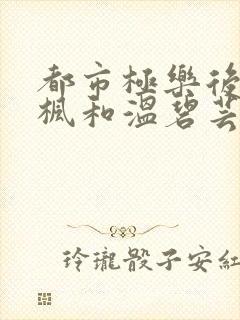 都市極樂後
楓和溫碧芸
玲瓏骰子安紅